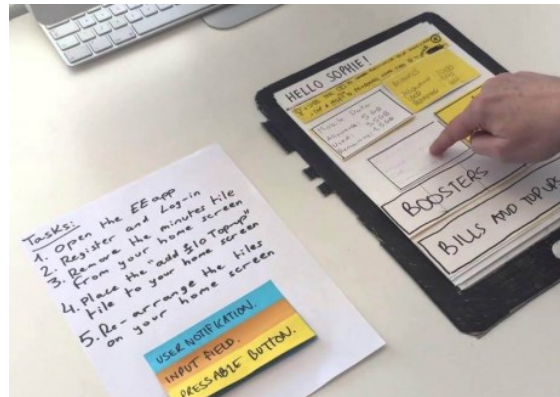 Tasks:
1. Open the EE app
2. Register and Log-in
3. Remove the minutes tile
from your home screen
4. Place the "add £10 Top-up"
tile to your home screen
5. Re-arrange the tiles
on your home screen
USER NOTIFICATION.
INPUT FIELD.
PRESSABLE BUTTON.
HELLO SOPHIE!
Mobile Data
BOOSTERS
BILLS AND TOP UPS